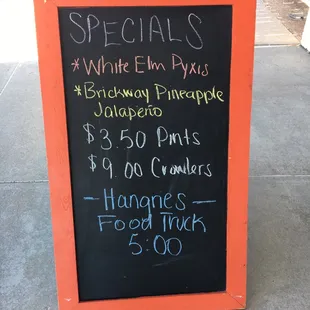 SPECIALS
*White Elm Pyxis
*Brickway Pineapple
Jalapeño
$3.50 Pints
$9.00 Crowlers
- Hangries -
Food Truck
5:00